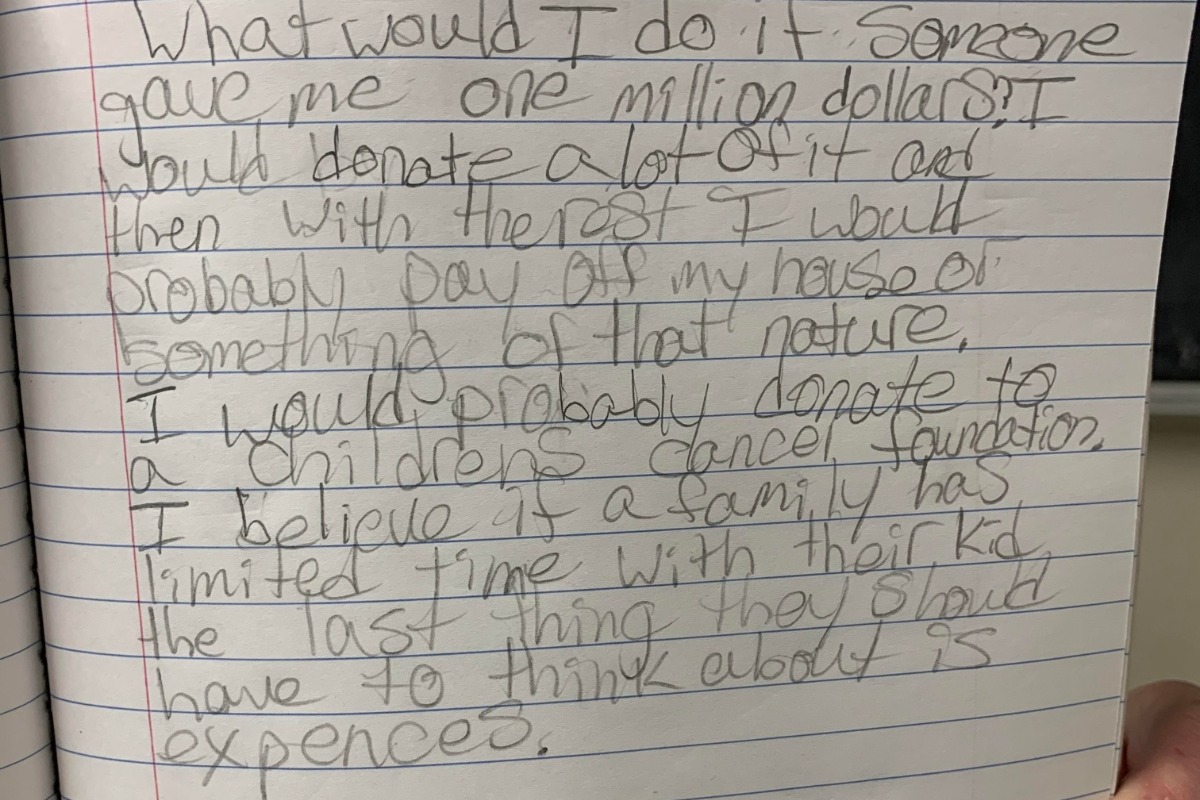 What would I do if someone
gave me one million dollars? I
would donate a lot of it and
then with the rest I would
probably pay off my house or
something of that nature.
I would probably donate to
a childrens cancer foundation.
I believe if a family has
limited time with their kid
the last thing they should
have to think about is
expences.